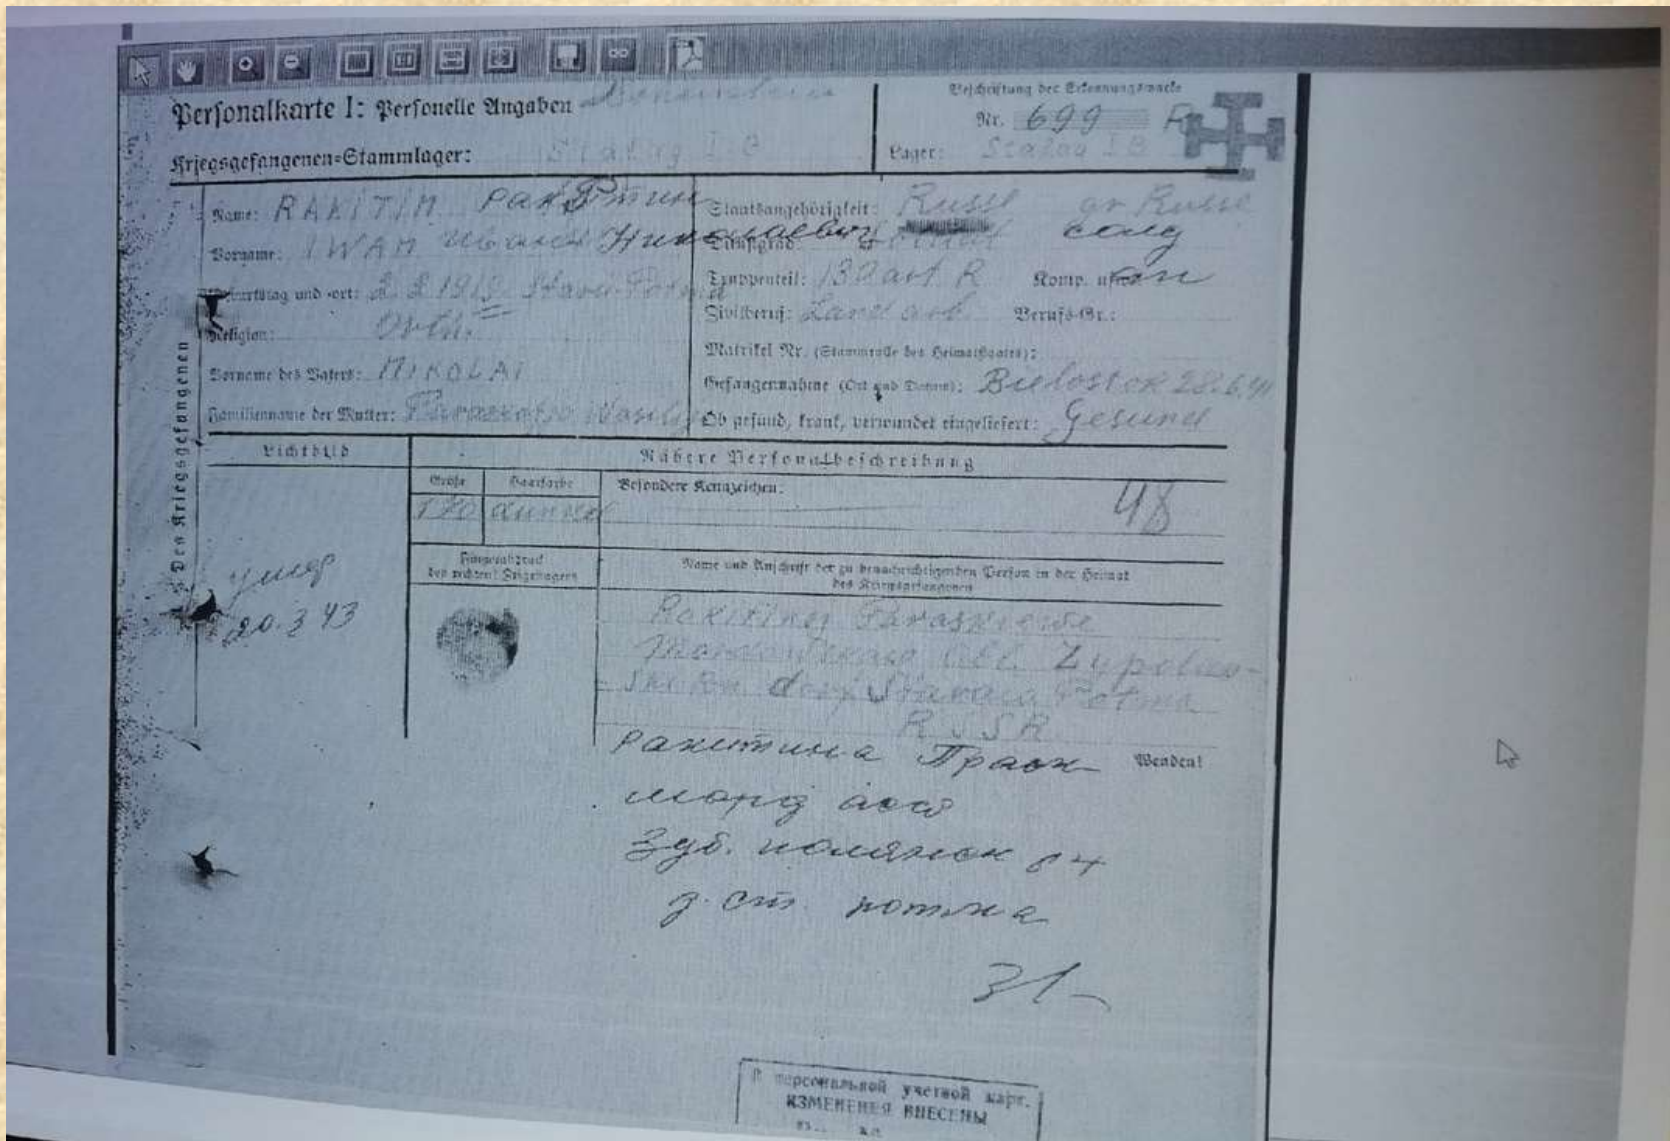 Personalkarte I: Personelle Angaben
Beschriftung der Erkennungsmarke
Nr. 699
Kriegsgefangenen-Stammlager: Stalag I B
Lager: Stalag I B
Des Kriegsgefangenen
Name: RAKITIN Ракитин
Vorname: IWAN Иван Николаевич
Geburtstag und -ort: 2. 2. 1919
Religion: Orth.
Vorname des Vaters: NIKOLAI
Familienname der Mutter:
Staatsangehörigkeit: Russe
Dienstgrad: Soldat солд
Truppenteil: 130 art R Komp. usw.:
Zivilberuf: Land arb. Berufs-Gr.:
Matrikel Nr. (Stammrolle des Heimatstaates):
Gefangennahme (Ort und Datum): Bielostok 28.6.41
Ob gesund, krank, verwundet eingeliefert: Gesund
Lichtbild
Nähere Personalbeschreibung
Größe
Haarfarbe
Besondere Kennzeichen:
170
dunkel
48
Fingerabdruck
des rechten Zeigefingers
Name und Anschrift der zu benachrichtigenden Person in der Heimat
des Kriegsgefangenen
умер
20.3 43
Staraia Potma
RSSR
Ракитина Праск
морд асср
Зуб. полянск
ст. потма
Wenden!
31
персональной учетной карт.
ИЗМЕНЕНЕЯ ВНЕСЕНЫ